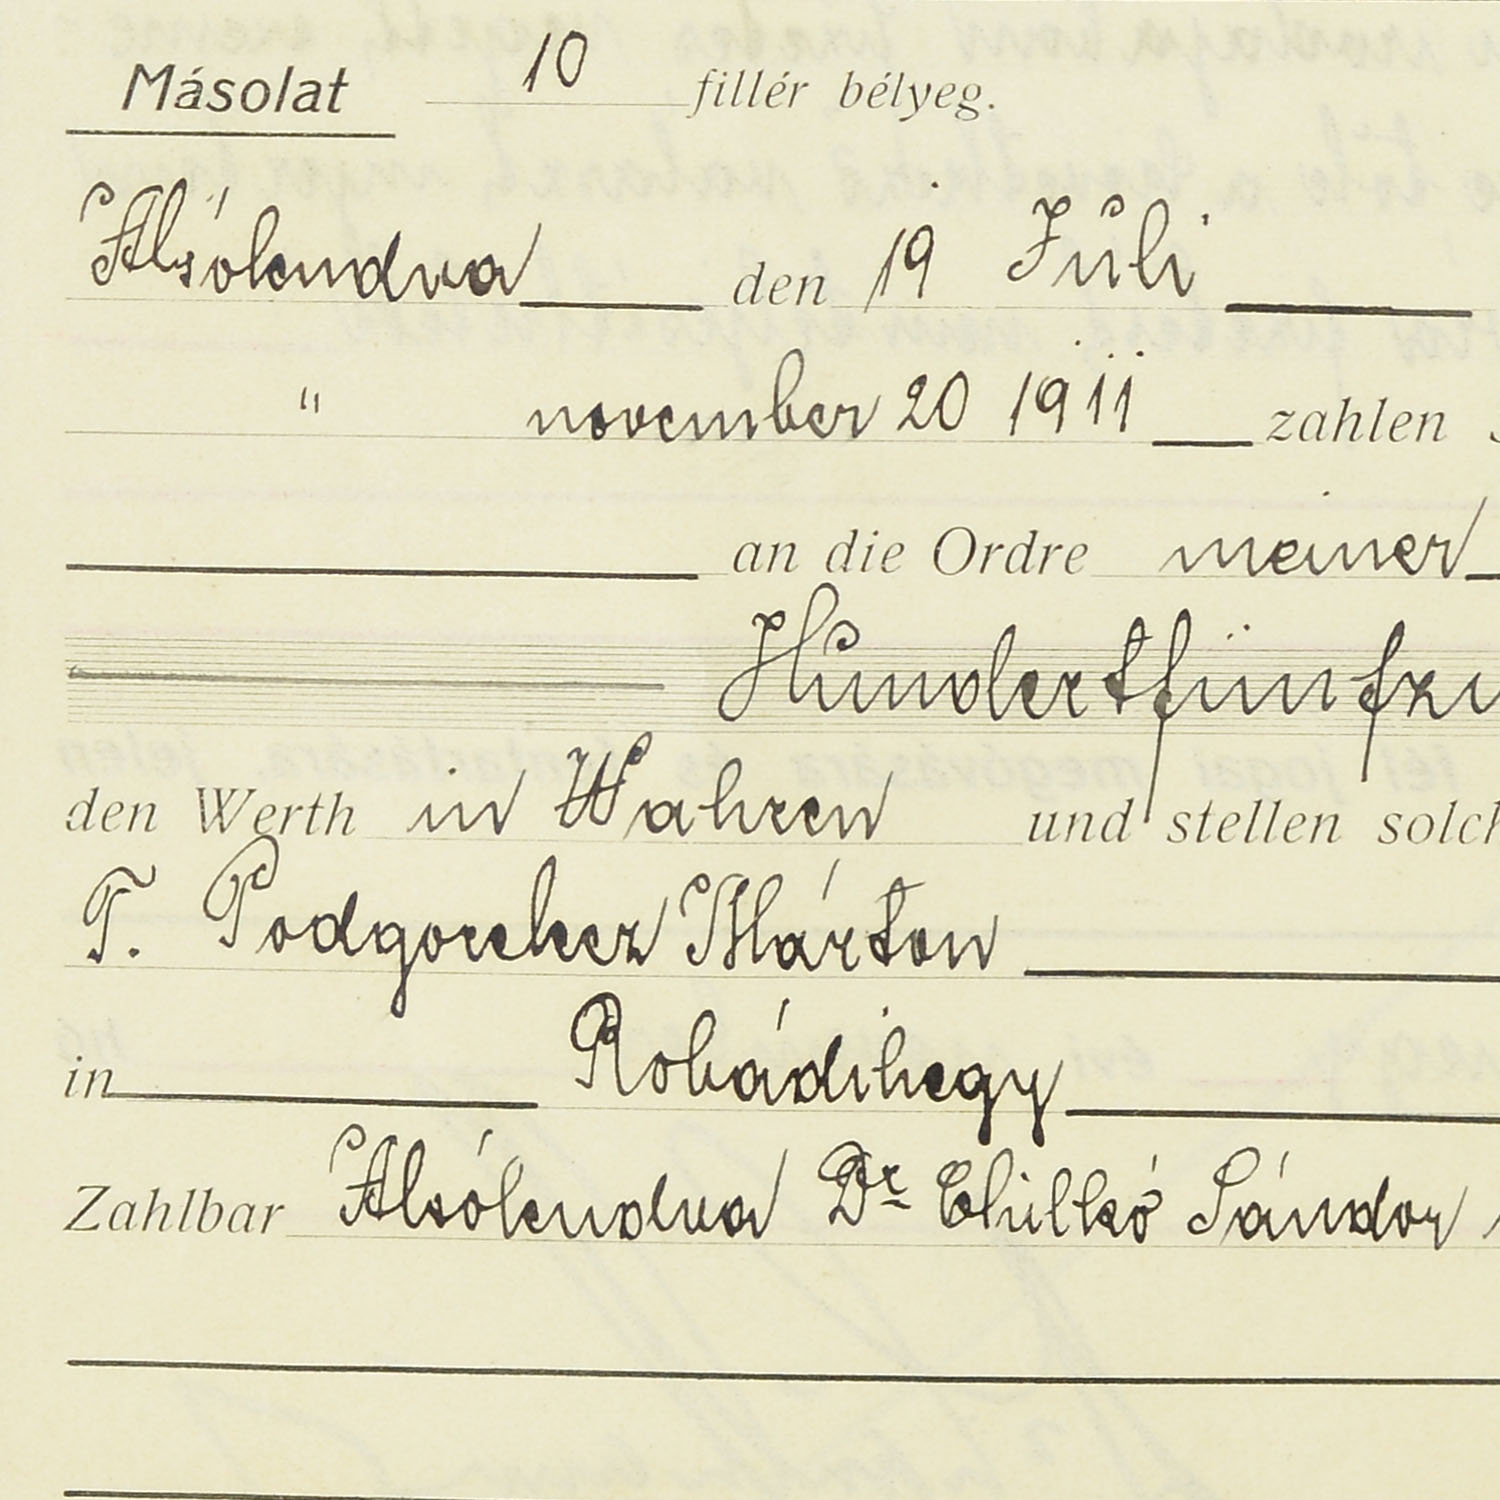 Másolat 10 fillér bélyeg.
Alsólendva den 19 Juli
" november 20 1911 zahlen
an die Ordre meiner
Hundertfünfzi
den Werth in Wahren und stellen solch
T. Podgorelecz Márton
in Robádihegy
Zahlbar Alsólendva Dr Sándor